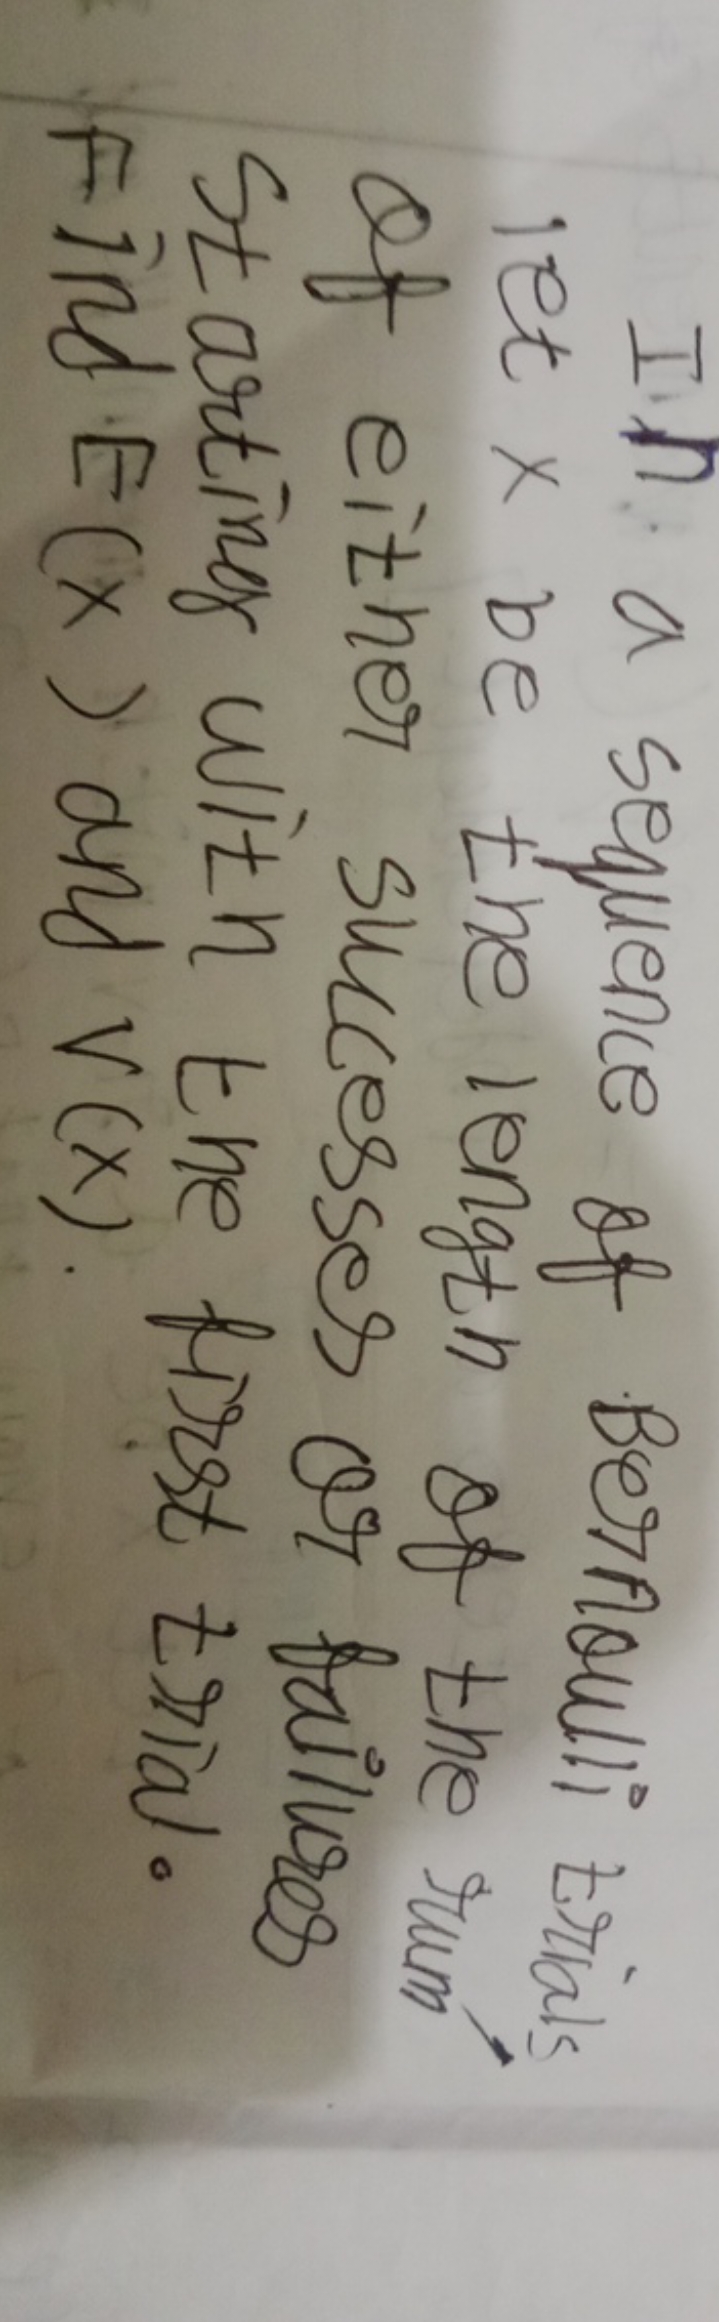 In a sequence of Bernoulli trials
let x be the length of the rum
of either successes or failures
starting with the first trial.
Find E(x) and V(x).